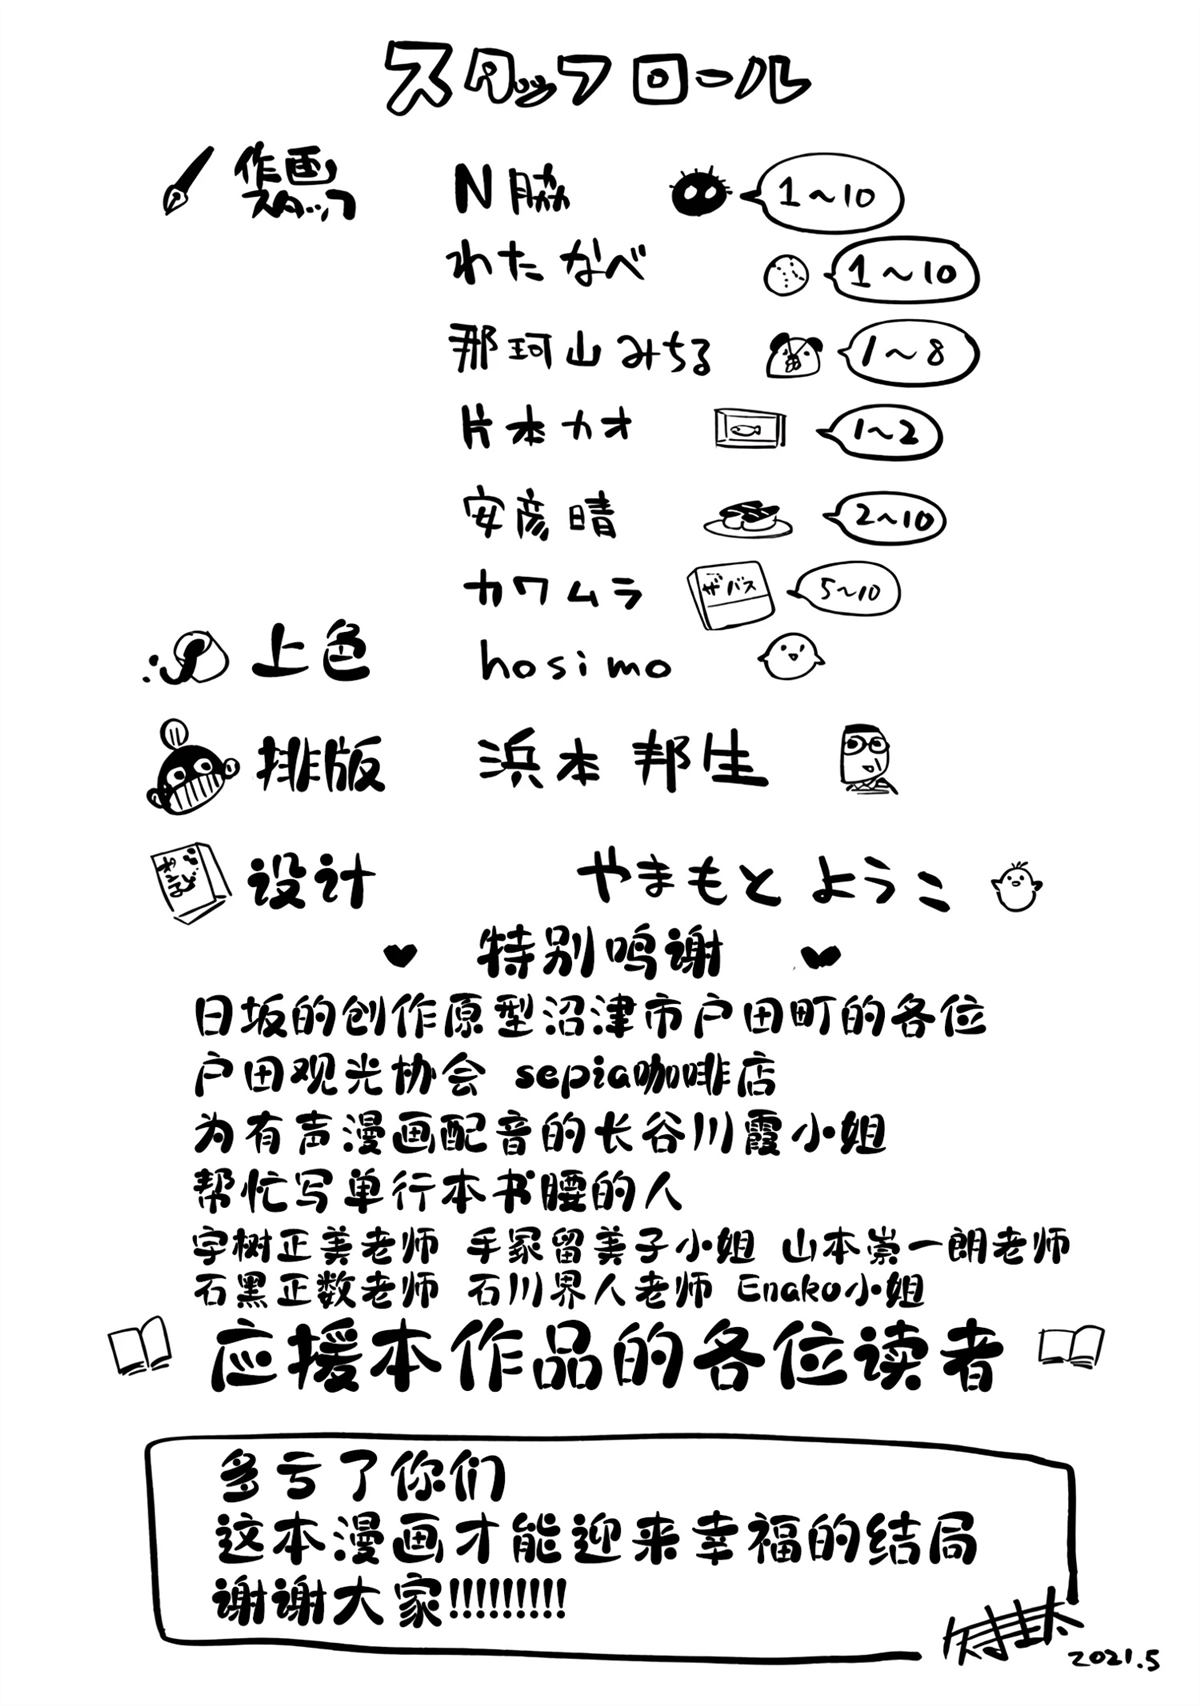 スタッフロール
作画スタッフ
N脇 1~10
わたなべ 1~10
那珂山みちる 1~8
片本カオ 1~2
安彦晴 2~10
カワムラ ザバス 5~10
上色 hosimo
排版 浜本邦生
设计 やまもとようこ
特别鸣谢
日坂的创作原型沼津市户田町的各位
户田观光协会 sepia咖啡店
为有声漫画配音的长谷川霞小姐
帮忙写单行本书腰的人
宇树正美老师 手冢留美子小姐 山本崇一朗老师
石黑正数老师 石川界人老师 Enako小姐
应援本作品的各位读者
多亏了你们
这本漫画才能迎来幸福的结局
谢谢大家!!!!!!!!!
2021.5